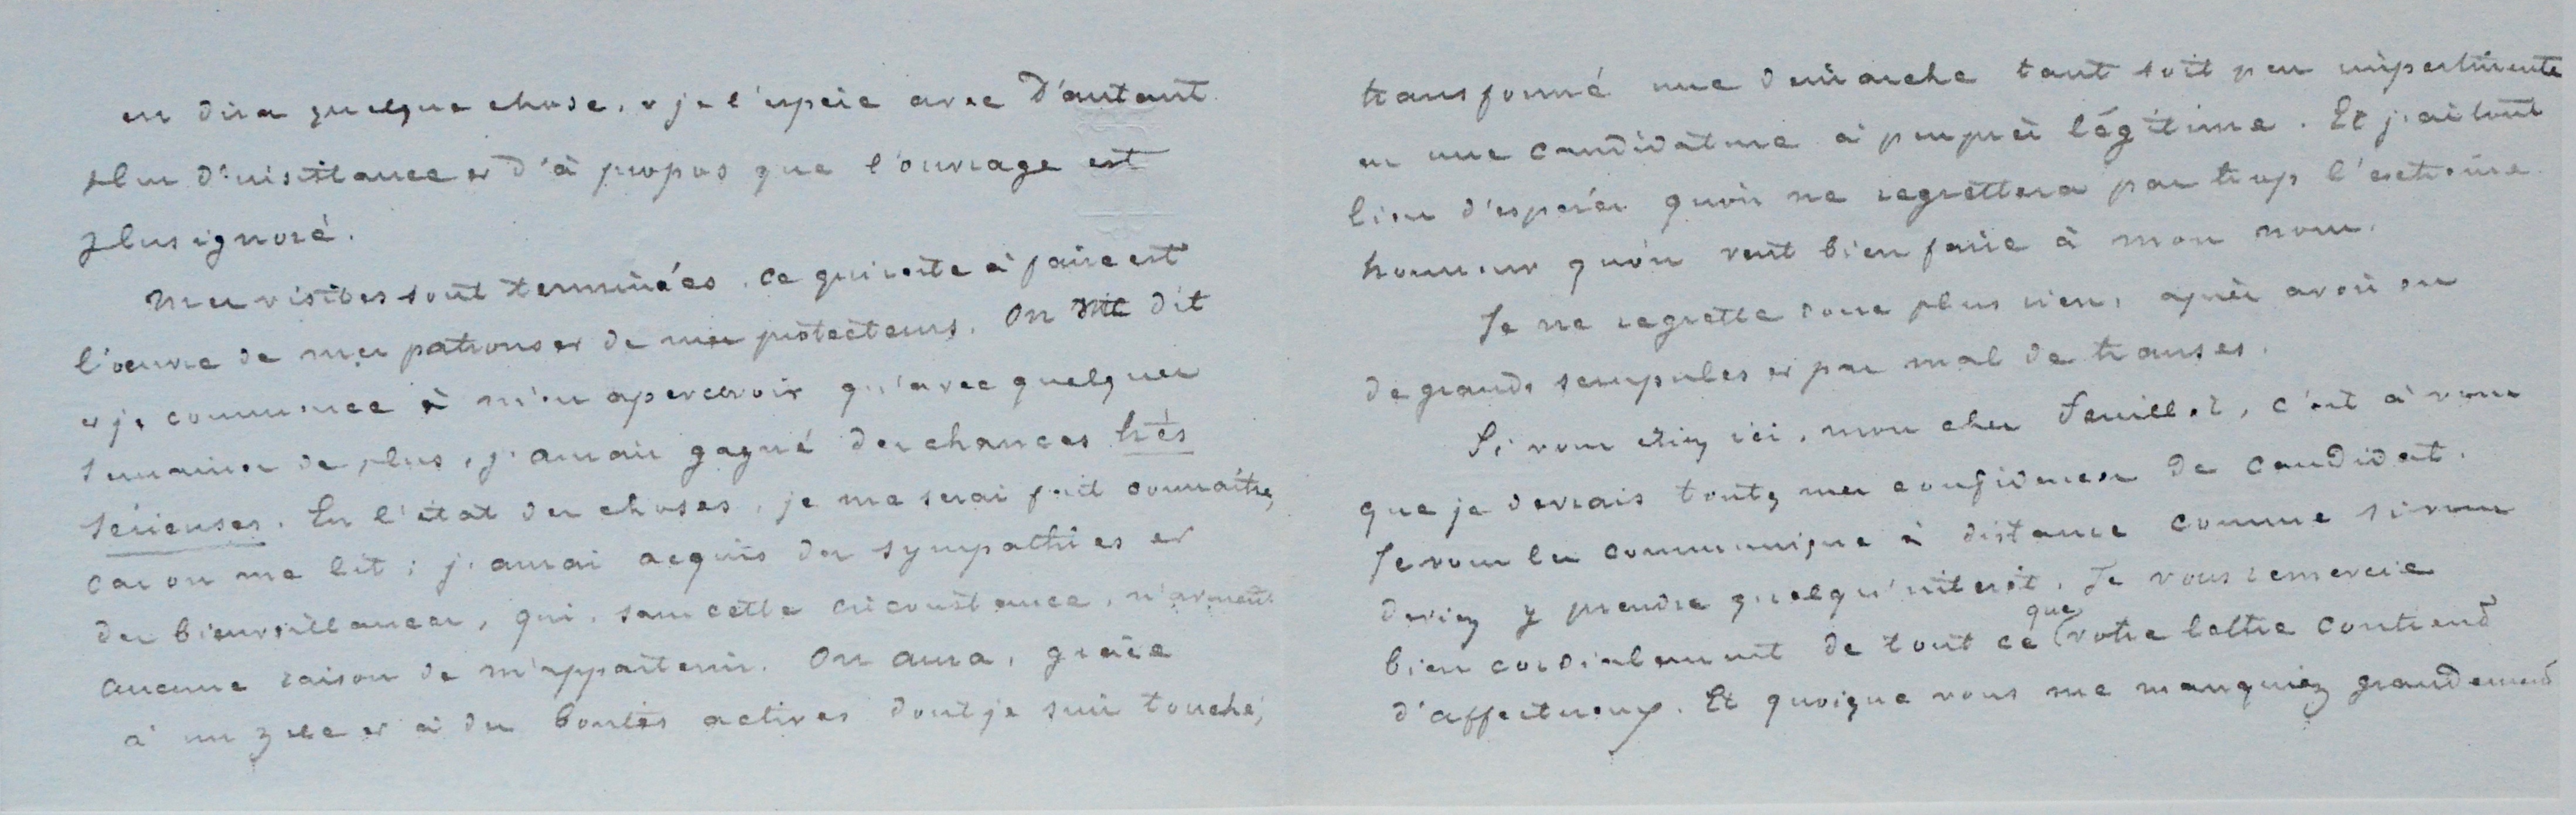 en dira quelque chose, & je l'espère avec d'autant
plus d'insistance et d'à propos que l'ouvrage est
plus ignoré.
Mes visites sont terminées. Ce qui reste à faire est
l'oeuvre de mes patrons et de mes protecteurs. On me dit
et je commence à m'en apercevoir qu'avec quelques
semaines de plus, j'aurais gagné des chances très
sérieuses. En l'état des choses, je me serai fait connaître,
car on me lit ; j'aurai acquis des sympathies et
des bienveillances, qui, sans cette circonstance, n'avaient
aucune raison de m'appartenir. On aura, grâce
à un zèle et à des bontés actives dont je suis touché,
transformé une démarche tant soit peu impertinente
en une candidature à peu près légitime. Et j'ai tout
lieu d'espérer qu'on ne regrettera pas trop l'extrême
honneur qu'on veut bien faire à mon nom.
Je ne regrette donc plus rien, après avoir eu
de grands scrupules et pas mal de transes.
Si vous étiez ici, mon cher Feuillet, c'est à vous
que je devrais toutes mes confidences de candidat.
Je vous les communique à distance comme si vous
deviez y prendre quelqu'intérêt. Je vous remercie
bien cordialement de tout ce que votre lettre contient
d'affectueux. Et quoique vous me manquiez grandement